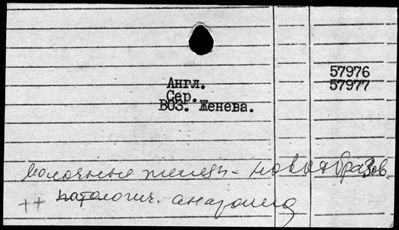 Англ. 57976
Сер. 57977
ВОЗ. Женева.
молочные железы - новообразов.
++ патологич. анатомия